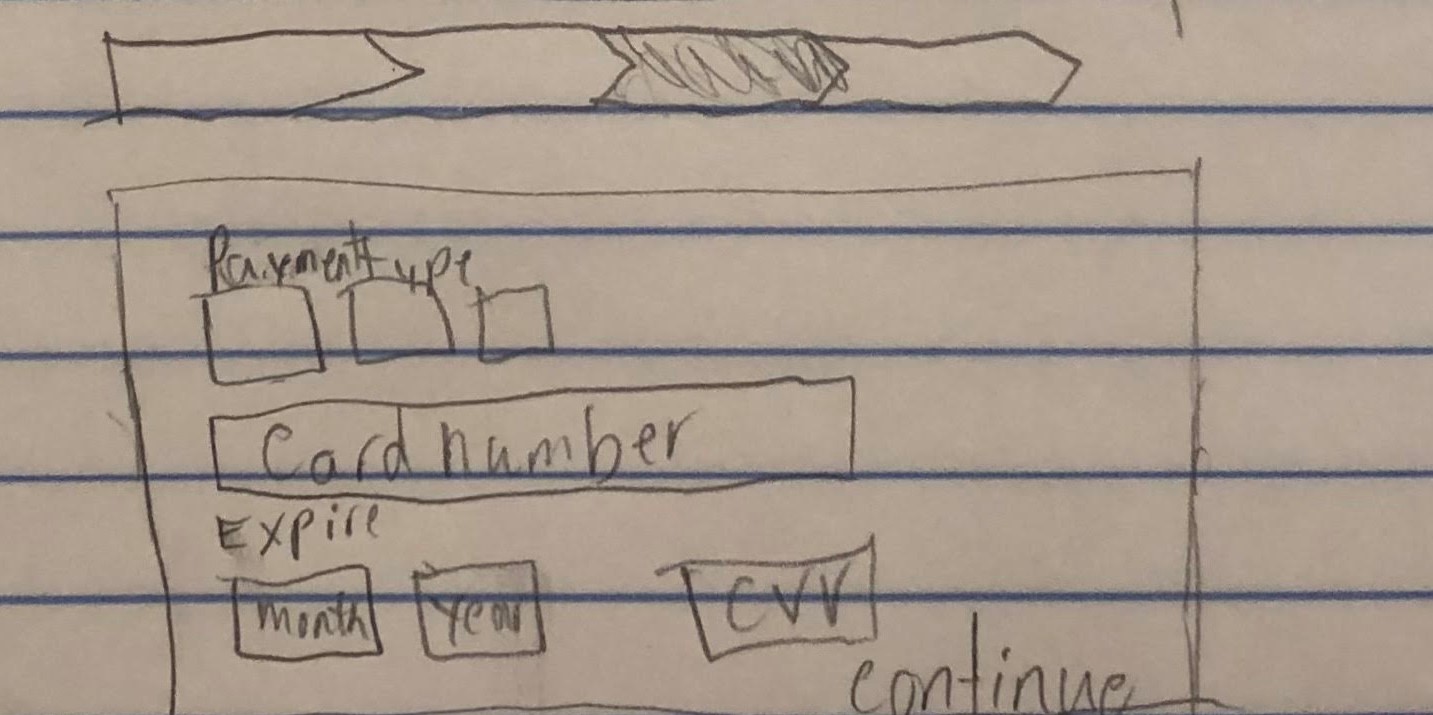 Payment type
Card number
Expire
month year CVV
continue